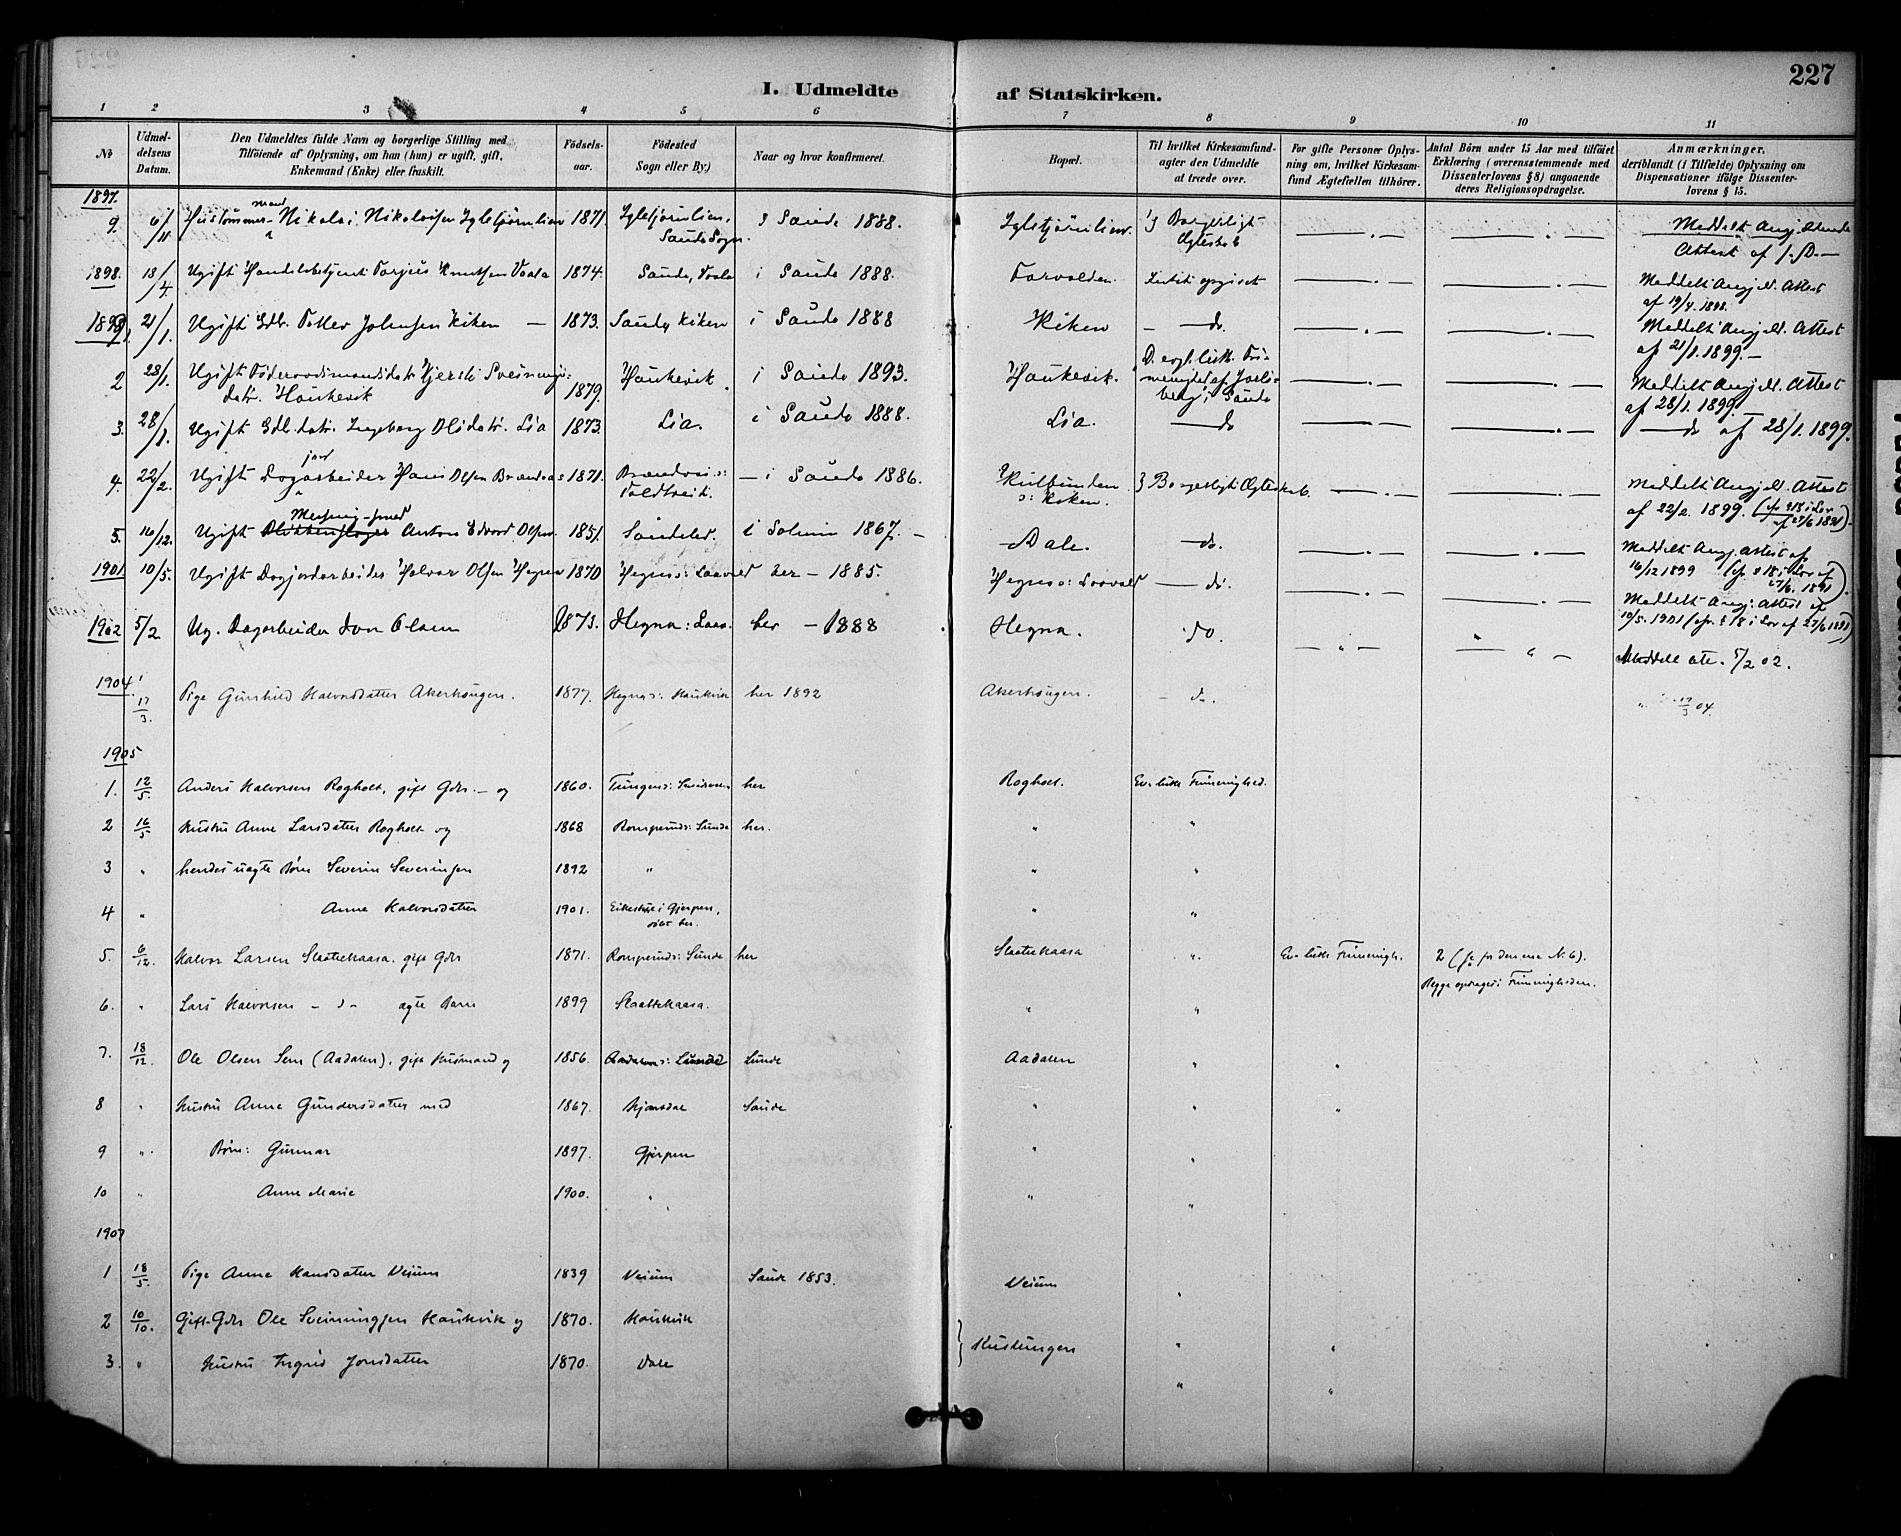 227
I. Udmeldte af Statskirken.
1 2 3 4 5 6 7 8 9 10 11
No
Udmeldelsens Datum.
Den Udmeldtes fulde Navn og borgerlige Stilling med
Tilføiende af Oplysning, om han (hun) er ugift, gift,
Enkemand (Enke) eller fraskilt.
Fødselsaar.
Fødested
Sogn eller By.)
Naar og hvor konfirmeret.
Bopæl.
Til hvilket Kirkesamfund
agter den Udmeldte
at træde over.
For gifte Personer Oplys-
ning om, hvilket Kirkesam-
fund Ægtefællen tilhører.
Antal Børn under 15 Aar med tilføiet
Erklæring (overensstemmende med
Dissenterlovens § 8) angaaende
deres Religionsopdragelse.
Anmærkninger.
deriblandt (i Tilfælde) Oplysning om
Dispensationer ifølge Dissenter-
lovens § 15.
1897.
9. 6/11 Nikolai Nikolaisen Igletjørnlien 1871. Igletjørnlien, Saude Sogn. i Saude 1888. Igletjørnlien. Borgerligt Ægteskab Meddelt Attest af
1898. 18/4 Ugift Handelsbetjent Torjus Knutsen Vaala 1874. Saude, Vaala i Saude 1888. Farvolden. Intet opgivet Meddelt Attest af 19/4. 1898.
1899. 21/1. Ugift Gdb. Tollev Johnsen Kiken 1873. Saude, Kiken i Saude 1888 Kiken do. Meddelt Attest af 21/1. 1899.
2 28/1. Ugift Kjersti Sveinungs-
datr. Haukevik 1879. Haukevik. i Saude 1893. Haukevik. Saude Meddelt Attest af 28/1. 1899.
3. 28/1. Ugift Gdb. datr. Ingeborg Olsdatr. Lia 1873. Lia. i Saude 1888. Lia. do do af 28/1. 1899.
4. 22/2. Ugift Dagarbeider Hans Olsen 1871. i Saude 1886. Borgerligt Ægteskab. Meddelt Attest af 22/2. 1899.
5. 16/12. Ugift Anton Edvard Olsen 1851. Søndeled. i 1867. Dale. do. Meddelt Attest af 16/12 1899
1901 10/5. Ugift Dagjordarbeider Halvor Olsen Hegna 1870 Hegna her - 1885. Hegna do. Meddelt Attest af 10/5. 1901
1902 5/2 Ug. Dagarbeider Jon Olsen 1873. Hegna her - 1888 Hegna. do. Meddelt att. 5/2 02.
1904 17/3. Pige Gunhild Halvorsdatter Akerhaugen. 1877. Hegna: Haukvik her 1892 Akerhaugen. do. 17/3 04.
1905
1. 12/5. Anders Halvorsen Rogholt, gift Gdr. - og 1860. her Rogholt. Ev. luth. Frimenighed.
2 16/5 Hustru Anne Larsdatter Rogholt og 1868 Romperud: Saude her. " "
3 " hendes uægte Børn Severin Severinsen 1892 " " "
4 " Anne Halvorsdatter 1901. i Gjerpen, døbt her. " "
5. 6/12. Halvor Larsen Slaattekaasa. gift Gdr 1871. Romperud: Saude her Slaattekaasa " Ev. luth. Frimenigh. 2 (se for den ene N. 6).
Begge opdrages i Frimenigheden.
6. " Lars Halvorsen - d - ægte Barn 1899 Slaattekaasa. " "
7. 18/12. Ole Olsen Sem (Aadalen), gift Husmand og 1856. Lunde Aadalen " "
8 " Hustru Anne Gundersdatter med 1867. Hjartdal Saude " " "
9 " Børn: Gunnar 1897. Gjerpen " "
10 " Anne Marie 1900. " " "
1907
1 18/5. Pige Anne Hansdatter Veium 1839 Veium Saude 1853. Veium "
2 10/10. Gift Gdr Ole Sveinungsen Haukvik og 1870. Haukvik " "
3. " Hustru Ingrid Jonsdatter 1870. Dale " "